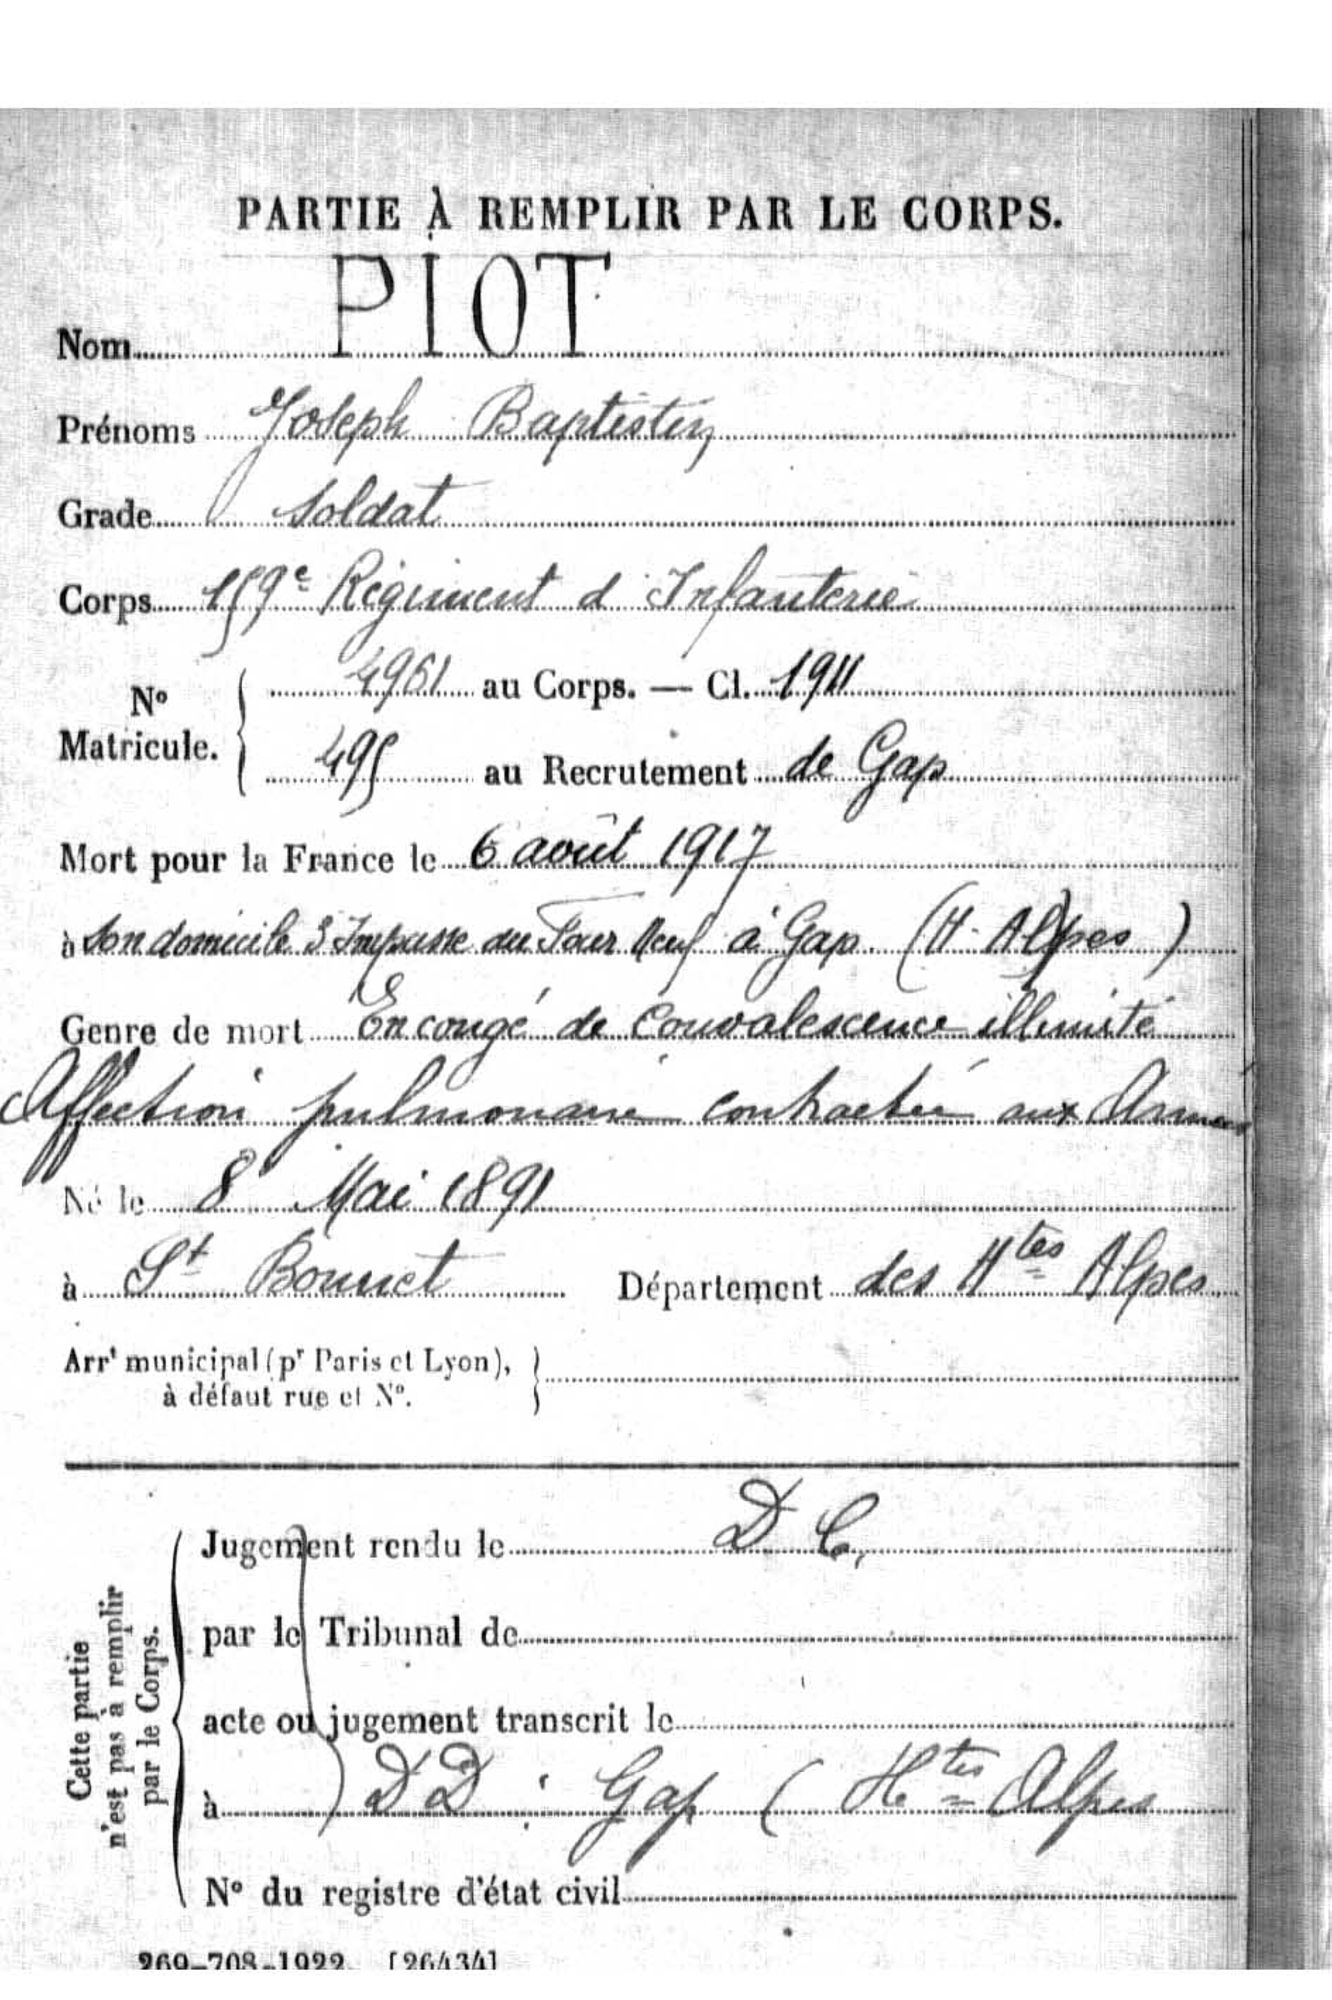 PARTIE À REMPLIR PAR LE CORPS.
Nom PIOT
Prénoms Joseph Baptistin
Grade Soldat
Corps 159e Régiment d Infanterie
No Matricule. 4961 au Corps. — Cl. 1911
495 au Recrutement de Gap
Mort pour la France le 6 août 1917
à son domicile 3 Impasse du Four Neuf à Gap (H. Alpes)
Genre de mort En congé de convalescence illimité
Affection pulmonaire contractée aux Armées
Né le 8 Mai 1891
à St Bonnet Département des Htes Alpes
Arrt municipal (pr Paris et Lyon),
à défaut rue et No.
Cette partie
n'est pas à remplir
par le Corps.
Jugement rendu le D C.
par le Tribunal de
acte ou jugement transcrit le
à DD : Gap (Htes Alpes
No du registre d'état civil
269-708-1922. [26434]